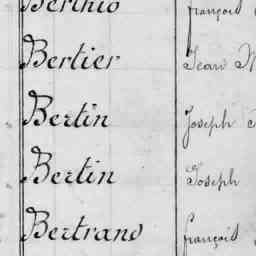 Berthio françois
Bertier Jean
Bertin Joseph
Bertin Joseph
Bertrand françois